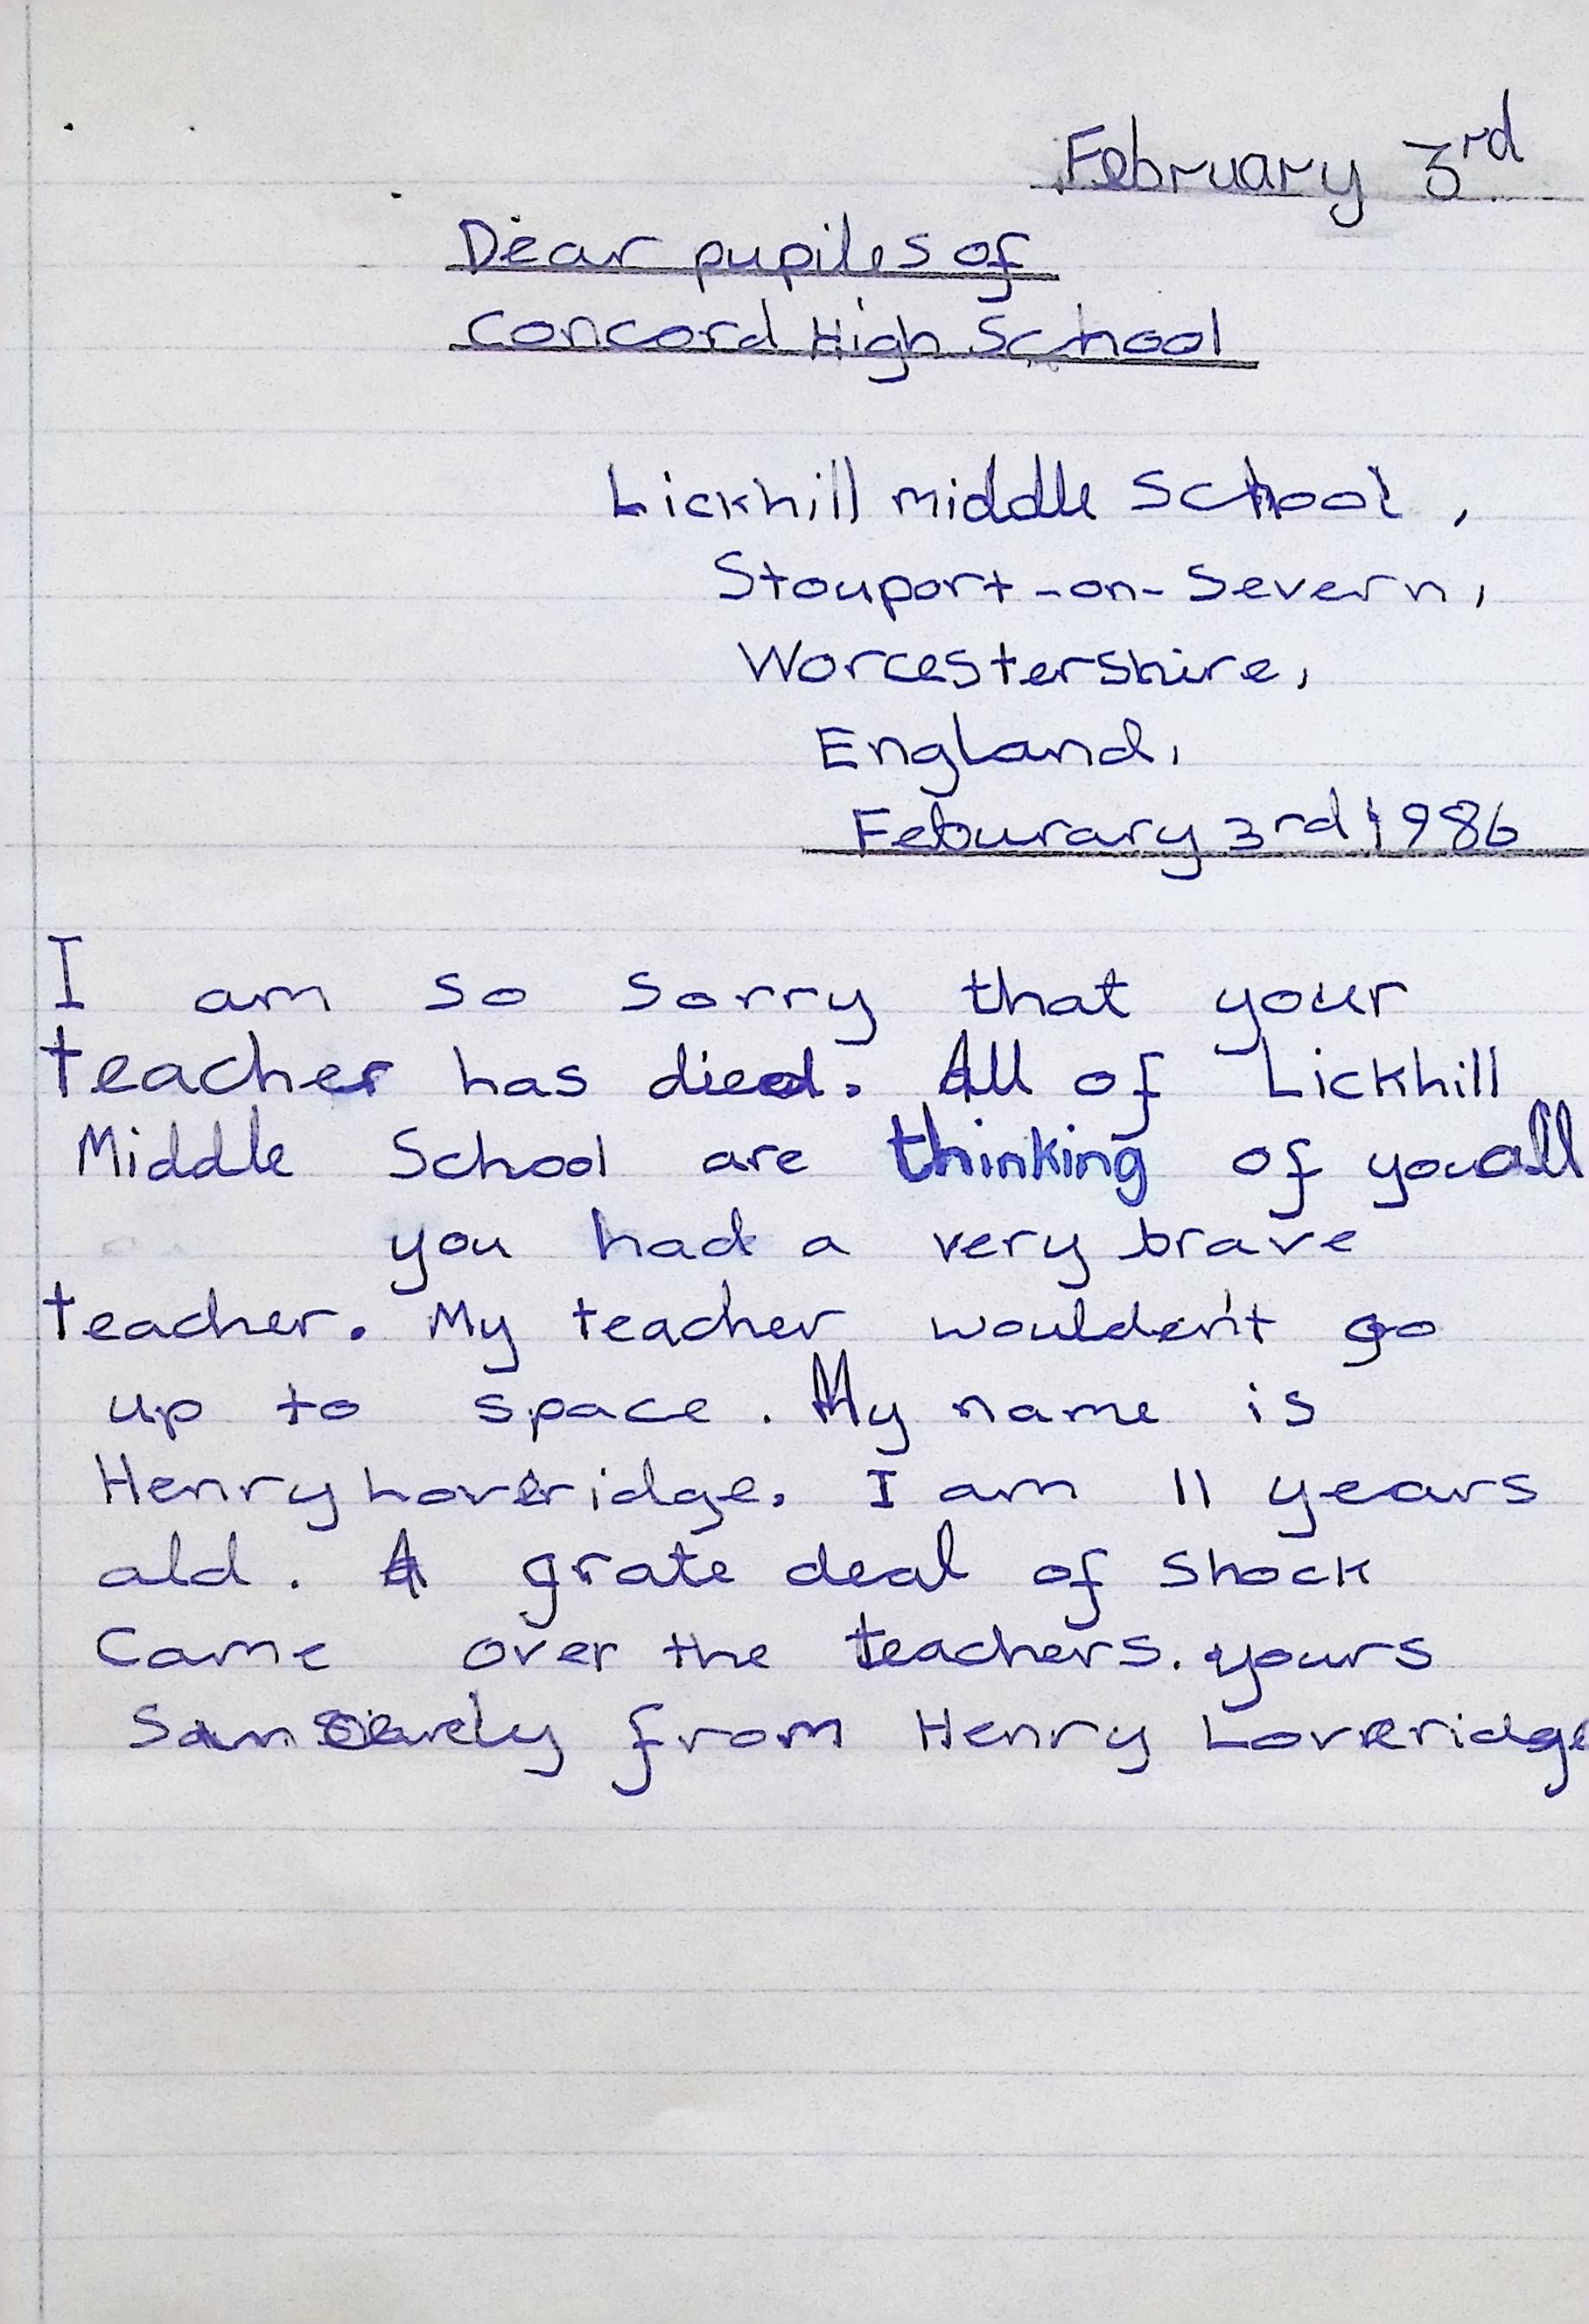 February 3rd
Dear pupiles of
Concord High School
Lickhill middle School,
Stouport-on-Severn,
Worcestershire,
England,
Feburary 3rd 1986
I am so sorry that your
teacher has died. All of Lickhill
Middle School are thinking of you all
you had a very brave
teacher. My teacher woulden't go
up to space. My name is
Henry Loveridge. I am 11 years
old. A grate deal of shock
Came over the teachers. yours
from Henry Loveridge